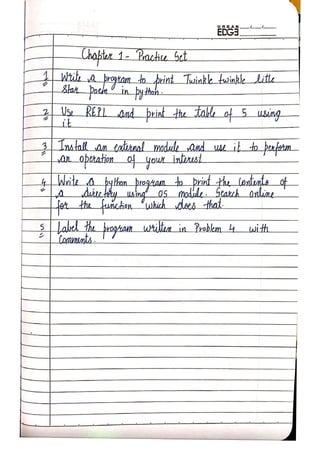 URBAN
EDGE
Chapter 1 - Practice Set
1 Write a program to print Twinkle twinkle little
Star poem in python.
2 Use REPL and print the table of 5 using
it
3 Install an external module and use it to perform
an operation of your Interest
4 Write a python program to print the contents of
a directory using OS module. Search online
for the function which does that.
5 Label the program written in Problem 4 with
Comments.